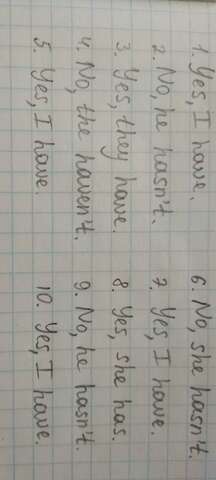 1. Yes, I have.
2. No, he hasn't.
3. Yes, they have.
4. No, the haven't.
5. Yes, I have.
6. No, she hasn't.
7. Yes, I have.
8. Yes, she has.
9. No, he hasn't.
10. Yes, I have.